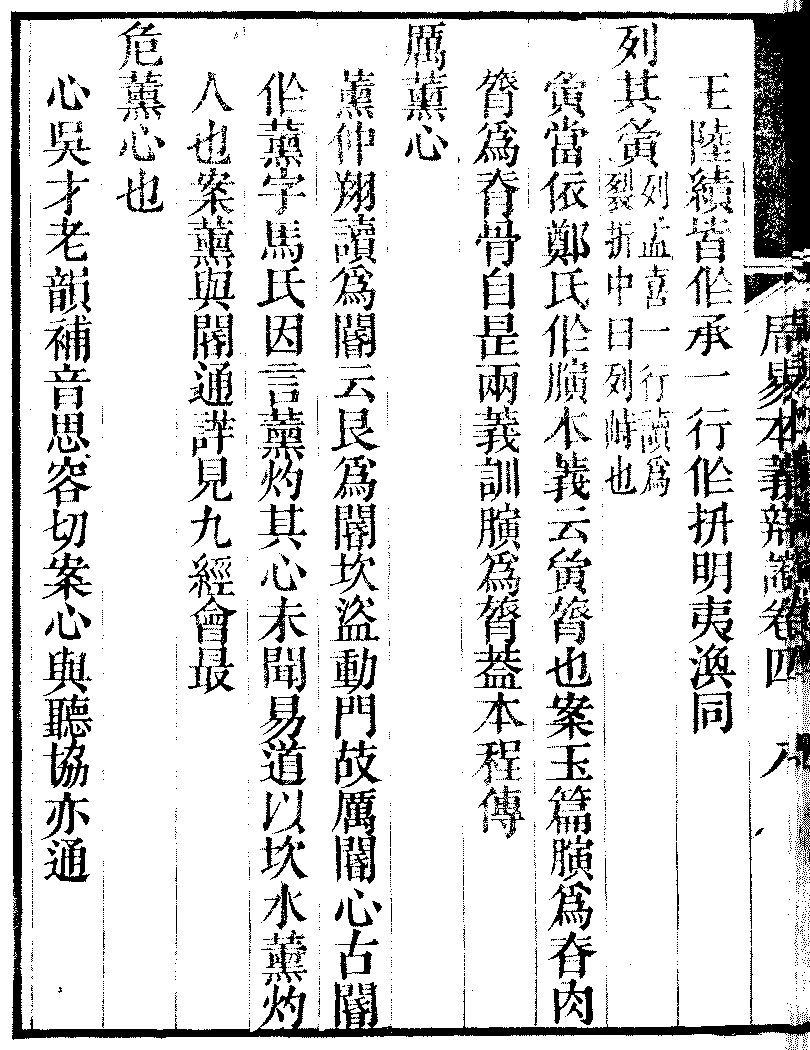 周易本義辨證卷四　八
王陸績皆作承一行作抍明夷渙同
列其夤列孟喜一行讀爲
裂折中曰列峙也
夤當依鄭氏作䐯本義云夤膂也案玉篇䐯爲脊肉
膂爲脊骨自是兩義訓䐯爲膂蓋本程傳
厲薰心
薰仲翔讀爲閽云艮爲閽坎盜動門故厲閽心古閽
作薰字馬氏因言薰灼其心未聞易道以坎水薰灼
人也案薰與閽通詳見九經會最
危薰心也
心吳才老韻補音思容切案心與聽協亦通